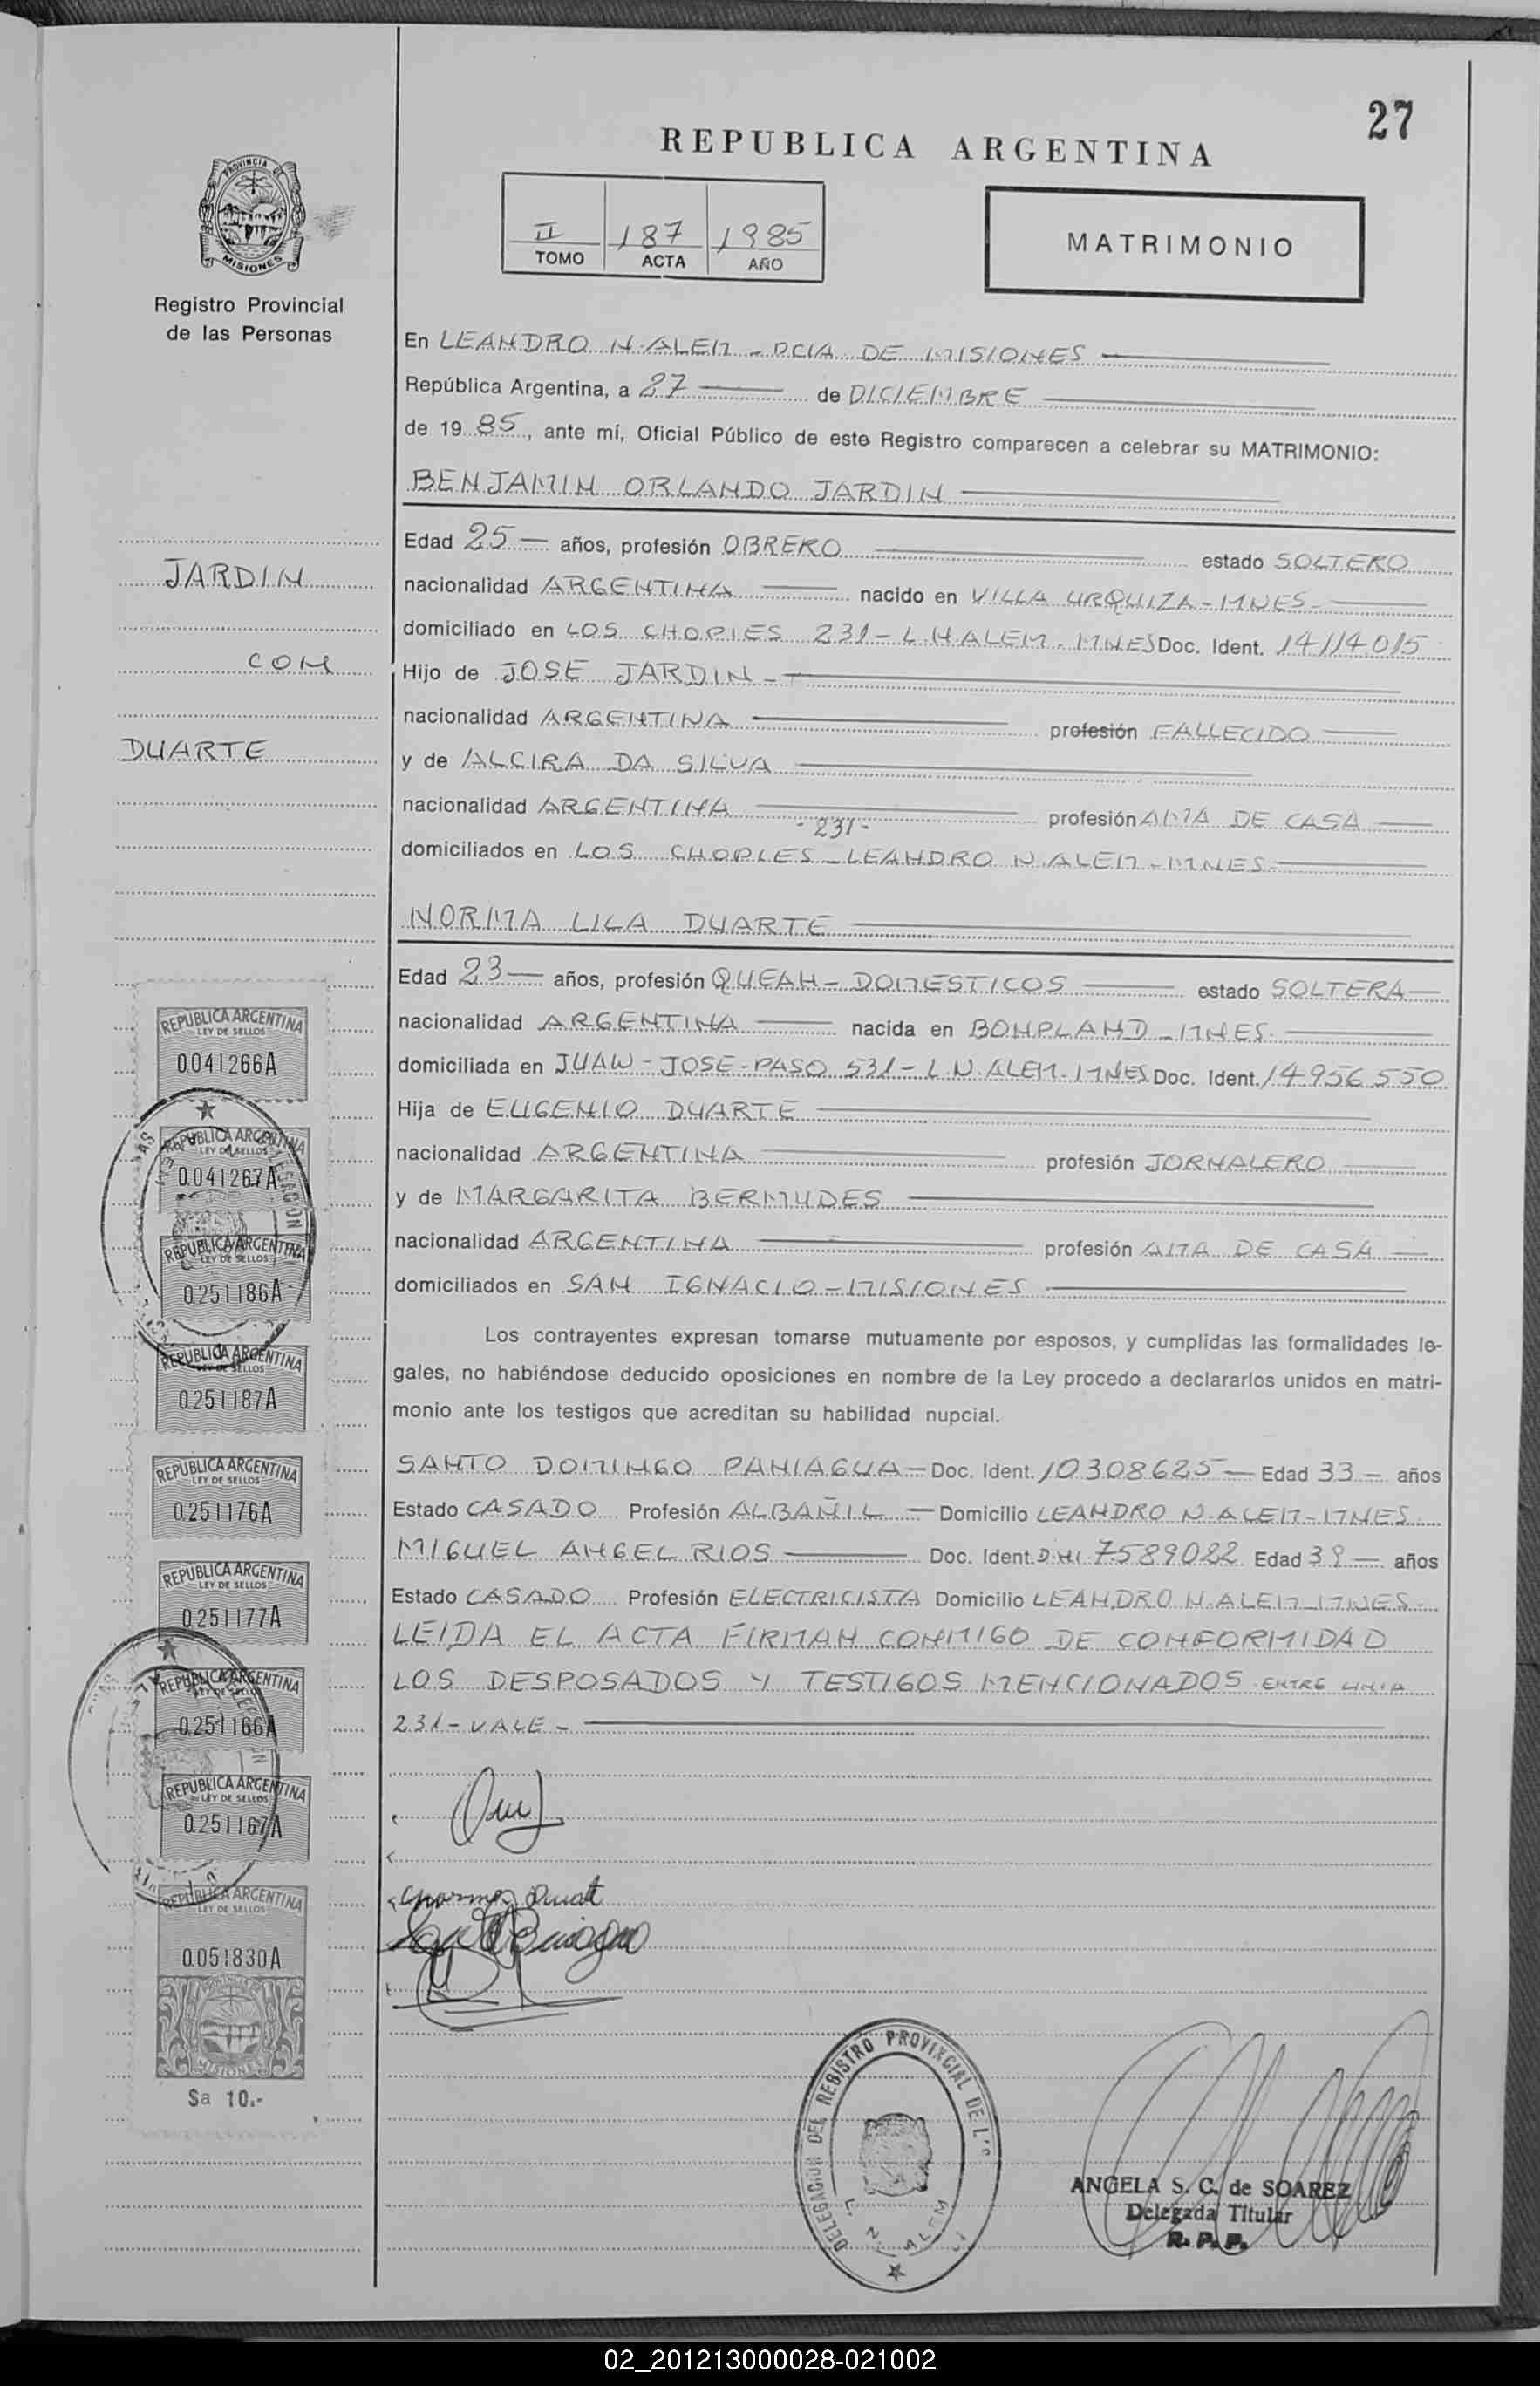 27
REPUBLICA ARGENTINA
PROVINCIA DE
MISIONES
Registro Provincial
de las Personas
II 187 1985
TOMO ACTA AÑO
MATRIMONIO
En LEANDRO N. ALEM - PCIA DE MISIONES
República Argentina, a 27 de DICIEMBRE
de 19 85, ante mí, Oficial Público de este Registro comparecen a celebrar su MATRIMONIO:
BENJAMIN ORLANDO JARDIN
Edad 25 - años, profesión OBRERO estado SOLTERO
JARDIN
nacionalidad ARGENTINA nacido en VILLA URQUIZA - MNES -
domiciliado en LOS CHOPIES 231 - L. N ALEM - MNES Doc. Ident. 14114015
CON
Hijo de JOSE JARDIN -
nacionalidad ARGENTINA profesión FALLECIDO
DUARTE
y de ALCIRA DA SILVA
nacionalidad ARGENTINA profesión AMA DE CASA
- 231 -
domiciliados en LOS CHOPIES - LEANDRO N. ALEM - MNES -
NORMA LILA DUARTE
Edad 23 - años, profesión QUEAH - DOMESTICOS estado SOLTERA -
nacionalidad ARGENTINA nacida en BONPLAND - MNES -
domiciliada en JUAN - JOSE - PASO 531 - L. N. ALEM - MNES Doc. Ident. 14956550
Hija de EUGENIO DUARTE
nacionalidad ARGENTINA profesión JORNALERO
y de MARGARITA BERMUDES
nacionalidad ARGENTINA profesión AMA DE CASA
domiciliados en SAN IGNACIO - MISIONES
Los contrayentes expresan tomarse mutuamente por esposos, y cumplidas las formalidades le-
gales, no habiéndose deducido oposiciones en nombre de la Ley procedo a declararlos unidos en matri-
monio ante los testigos que acreditan su habilidad nupcial.
SANTO DOMINGO PANIAGUA - Doc. Ident. 10308625 - Edad 33 - años
Estado CASADO Profesión ALBAÑIL - Domicilio LEANDRO N. ALEM - MNES
MIGUEL ANGEL RIOS Doc. Ident. DNI 7589022 Edad 39 - años
Estado CASADO Profesión ELECTRICISTA Domicilio LEANDRO N. ALEM - MNES -
LEIDA EL ACTA FIRMAN CONMIGO DE CONFORMIDAD
LOS DESPOSADOS Y TESTIGOS MENCIONADOS ENTRE LINIA
231 - VALE -
REPUBLICA ARGENTINA
LEY DE SELLOS
0.041266A
REPUBLICA ARGENTINA
LEY DE SELLOS
0.041267A
REPUBLICA ARGENTINA
LEY DE SELLOS
0.251186A
REPUBLICA ARGENTINA
LEY DE SELLOS
0.251187A
REPUBLICA ARGENTINA
LEY DE SELLOS
0.251176A
REPUBLICA ARGENTINA
LEY DE SELLOS
0.251177A
REPUBLICA ARGENTINA
0.251166A
REPUBLICA ARGENTINA
LEY DE SELLOS
0.251167A
REPUBLICA ARGENTINA
LEY DE SELLOS
0.051830A
MISIONES
$a 10.-
DELEGACION DEL REGISTRO PROVINCIAL DE L'S
L. N. ALEM
ANGELA S. C. de SOAREZ
Delegada Titular
R. P. P.
02_201213000028-021002